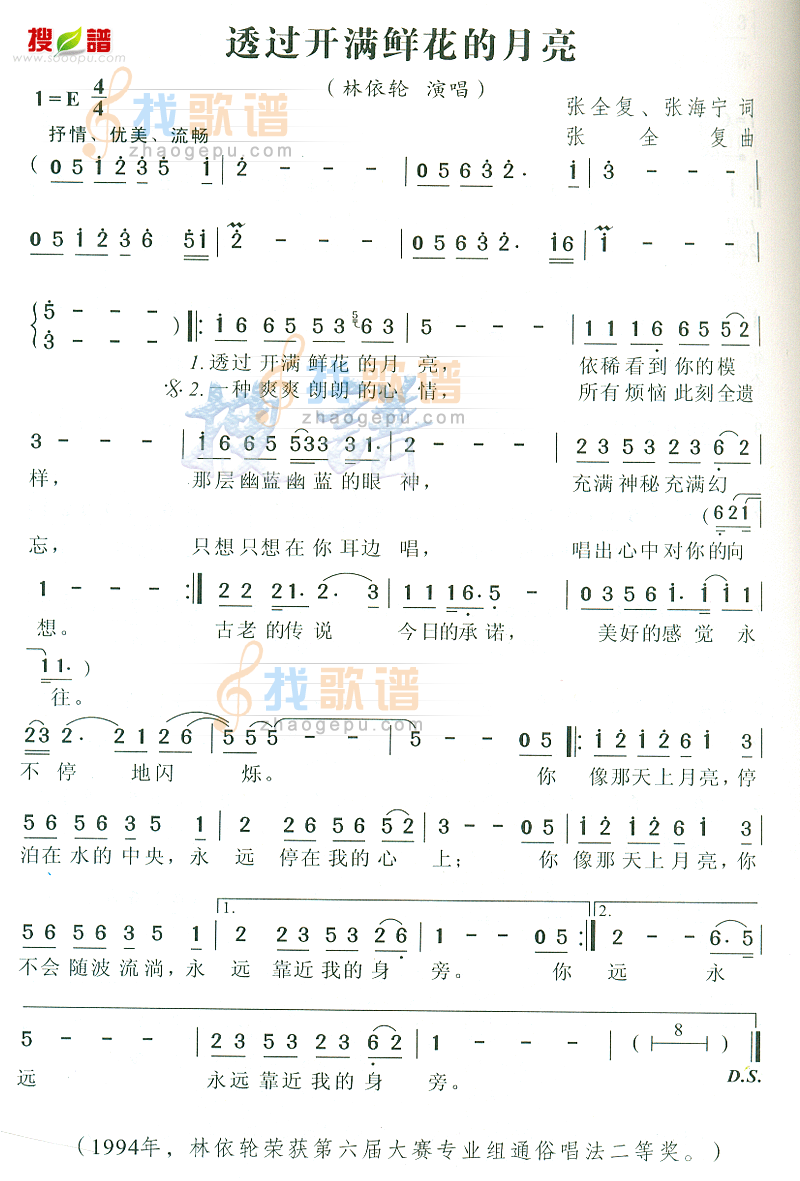 搜谱
www.sooopu.com
透过开满鲜花的月亮
（林依轮 演唱）
1=E 4/4
张全复、张海宁 词
抒情、优美、流畅
张全复 曲
找歌谱
zhaogepu.com
( 0 5 1 2 3 5 1 | 2 - - - | 0 5 6 3 2 . 1 | 3 - - - |
0 5 1 2 3 6 5 1 | 2 - - - | 0 5 6 3 2 . 1 6 | 1 - - - |
5 - - -
3 - - - ) |: 1 6 6 5 5 3 5 6 3 | 5 - - - | 1 1 1 6 6 5 5 2 |
1.透过开满鲜花的月亮， 依稀看到你的模
2.一种爽爽朗朗的心情， 所有烦恼此刻全遗
找歌谱
zhaogepu.com
搜谱
3 - - - | 1 6 6 5 5 3 3 3 1 . | 2 - - - | 2 3 5 3 2 3 6 2 |
样， 那层幽蓝幽蓝的眼神， 充满神秘充满幻
( 6 2 1
忘， 只想只想在你耳边唱， 唱出心中对你的向
1 - - - :| 2 2 2 1 . 2 . 3 | 1 1 1 6 . 5 - | 0 3 5 6 1 . 1 1 1 |
想。 古老的传说 今日的承诺， 美好的感觉永
1 1 . )
往。
找歌谱
zhaogepu.com
2 3 2 . 2 1 2 6 | 5 5 5 - - | 5 - - 0 5 |: 1 2 1 2 6 1 3 |
不停地闪烁。 你 像那天上月亮，停
5 6 5 6 5 6 3 5 1 | 2 2 6 5 6 5 2 | 3 - - 0 5 | 1 2 1 2 6 1 3 |
泊在水的中央，永远停在我的心上； 你像那天上月亮，你
1. 2.
5 6 5 6 5 6 3 5 1 | 2 2 3 5 3 2 6 | 1 - - 0 5 :| 2 - - 6 . 5 |
不会随波流淌，永远靠近我的身旁。 你远 永
5 - - - | 2 3 5 3 2 3 6 2 | 1 - - - | ( 8 ) ||
远 永远靠近我的身旁。 D.S.
（1994年，林依轮荣获第六届大赛专业组通俗唱法二等奖。）